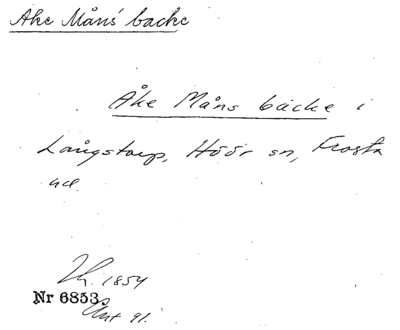 Åke Måns' backe
Åke Måns backe i
Långstorp, Höör sn, Frosta
hd.
1854
Nr 6853
Ant 91.